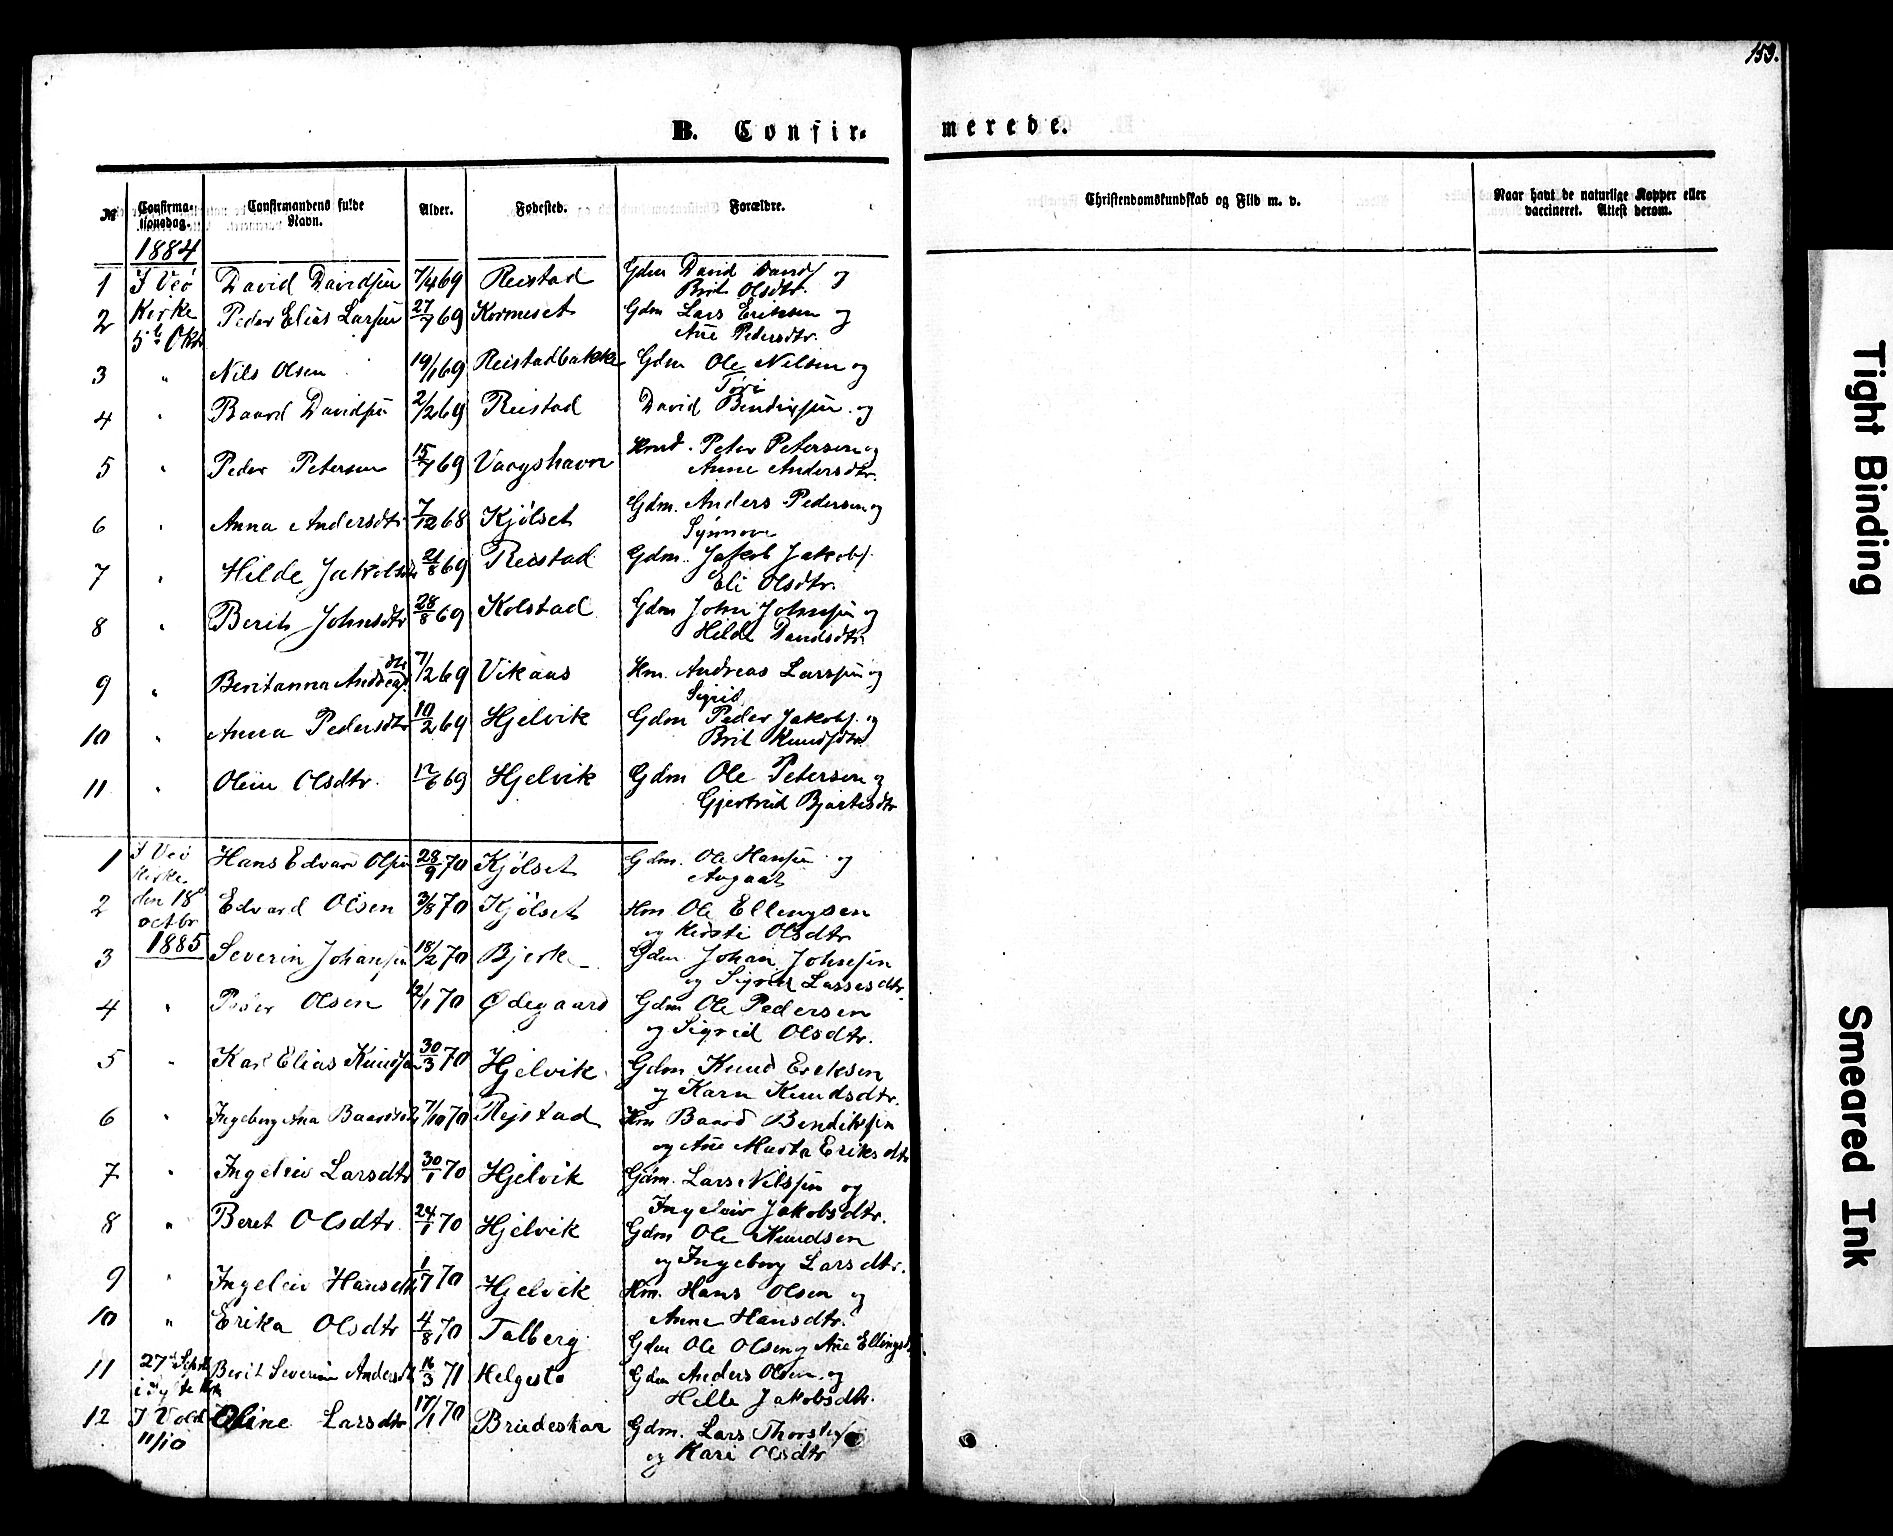 153.
B. Confir-
merede.
№
Confirma-
tionsdag.
Confirmandens fulde
Navn.
Alder.
Fødested.
Forældre.
Christendomskundskab og Flid m. v.
Naar havt de naturlige Kopper eller
vaccineret. Attest derom.
1884
1 I Veø David Davidsen 7/4 69 Reistad Gdm David Davids og
Brit Olsdtr.
2 Kirke Peder Elias Larsen 27/7 69 Kormeset Gdm Lars Eriksen og
5te Okt Ane Pedersdtr.
3 " Nils Olsen 19/1 69 Reistadbakke Gdm Ole Nilsen og
Tøri
4 " Baard Davidsen 2/2 69 Reistad David Bendixsen og
5 " Peder Petersen 15/7 69 Vaagshavn Hmd. Peter Petersen og
Anne Andersdtr.
6 " Anna Andersdtr 7/12 68 Kjølset Gdm. Anders Pedersen og
Synnove
7 " Hilde Jakobsdtr 21/8 69 Reistad Gdm. Jakob Jakobs.
Eli Olsdtr.
8 " Berit Johnsdtr 28/8 69 Kolstad Gdm John Johnsen og
Hilde Davidsdtr
9 " Beritanna Andreas dtr 7/2 69 Vikaas Hm. Andreas Larssen og
Sigrid
10 " Anna Pedersdtr 10/2 69 Hjelvik Gdm Peder Jakobs. og
Brit Knudsdtr
11 " Oline Olsdtr. 12/6 69 Hjelvik Gdm Ole Petersen og
Gjertrud Bjartesdtr
1 I Veø Hans Edvard Olsen 28/9 70 Kjølset Gdm. Ole Hansen og
Kirke Aagaat
2 den 18 Edvard Olsen 3/8 70 Kjølset Hm Ole Ellingsen
octbr og Kirsti Olsdtr
1885
3 Severin Johansen 18/2 70 Bjerke Gdm. Johan Johnsen
og Sigrid Lassesdtr.
4 " Peder Olsen 12/1 70 Ødegaard Gdm Ole Pedersen
og Sigrid Olsdtr.
5 " Karl Elias Knudsen 30/3 70 Hjelvik Gdm Knud Eriksen
og Karn Knudsdtr.
6 " Ingeborg Ana Baardsdtr 7/10 70 Rejstad Hm Baard Bendiksen
og Ane Marta Eriksdtr
7 " Ingeleiv Larsdtr 30/1 70 Hjelvik Gdm. Lars Nilssen og
Ingeleiv Jakobsdtr.
8 " Beret Olsdtr. 24/1 70 Hjelvik Gdm Ole Knudsen
og Ingeborg Larsdtr.
9 " Ingeleiv Hansdtr 1/7 70 Hjelvik Hm. Hans Olsen og
Anne Hansdtr.
10 " Erika Olsdtr 4/8 70 Talberg Gdm Ole Olsen og Ane Ellingsd
11 27d Berit Severine Andersdtr 16/3 71 Helgesta Gdm Anders Olsen og
Hille Jakobsdtr.
12 I Vold Oline Larsdtr 17/1 70 Brudeskar Gdm. Lars
11/10 og Kari Olsdtr
Tight Binding
Smeared Ink